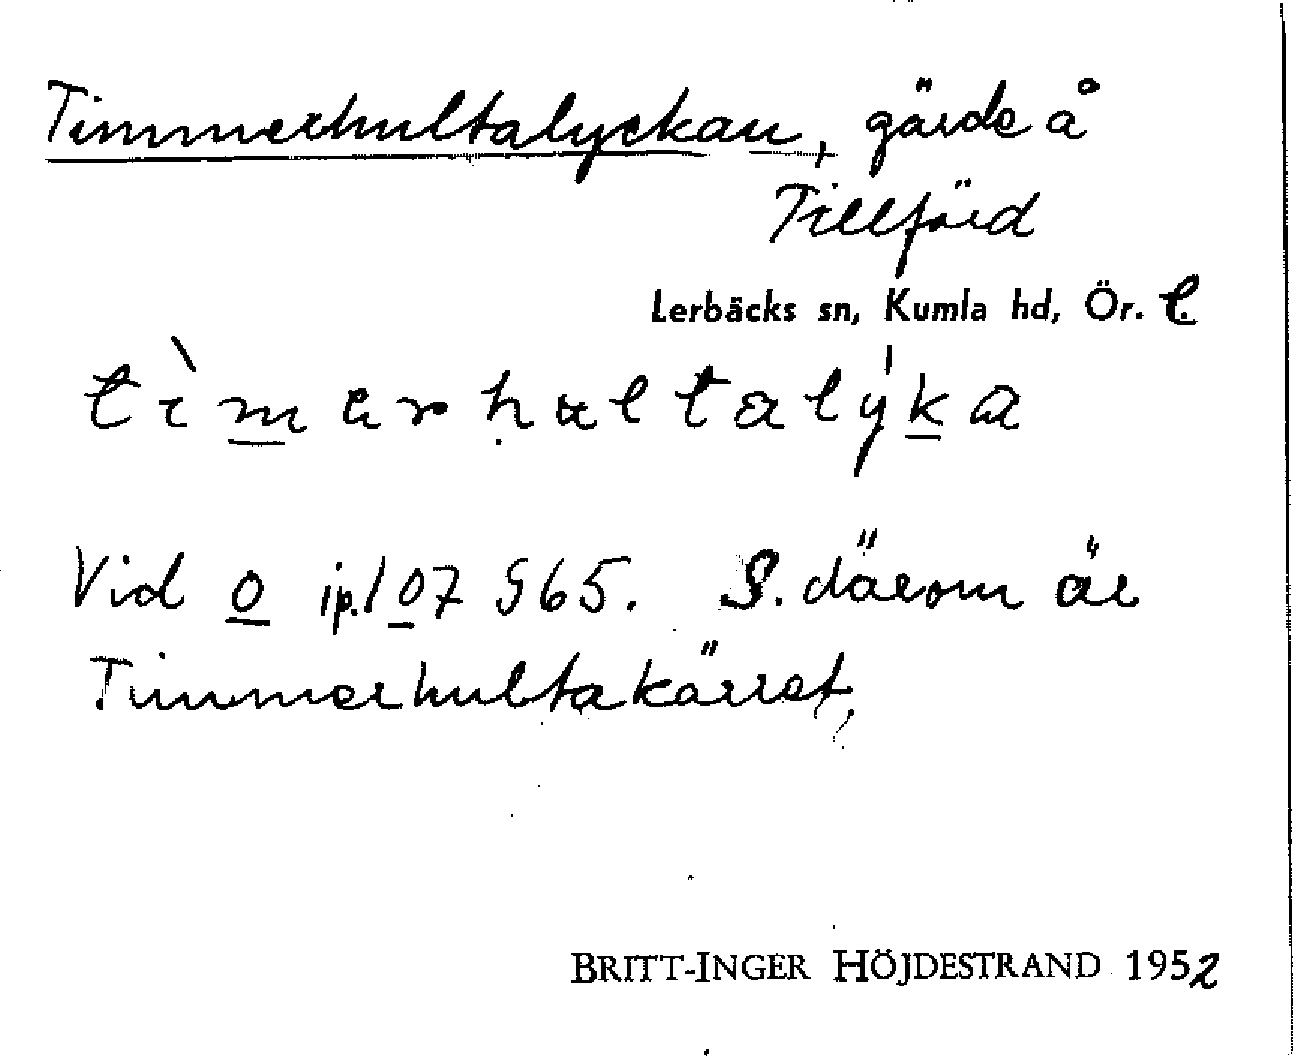 Timmerhultalyckan, gärde å
Tillförd
Lerbäcks sn, Kumla hd, Ör. l.
tìmərhultalýka
Vid o ip./07 § 65. S. därom är
Timmerhultakärret.
BRITT-INGER HÖJDESTRAND 1952